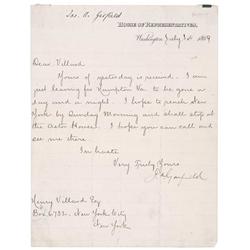 Jas. A. Garfield
HOUSE OF REPRESENTATIVES,
Washington July 30 1869
Dear Villard
Yours of yesterday is received. I am
just leaving for Hampton Va. to be gone
a day and a night. I hope to reach New
York by Sunday Morning and shall stop at
the Astor House. I hope you can call and
see me there
In haste
Very Truly Yours
J A Garfield
Henry Villard Esq
Box 6732. New York City
New York